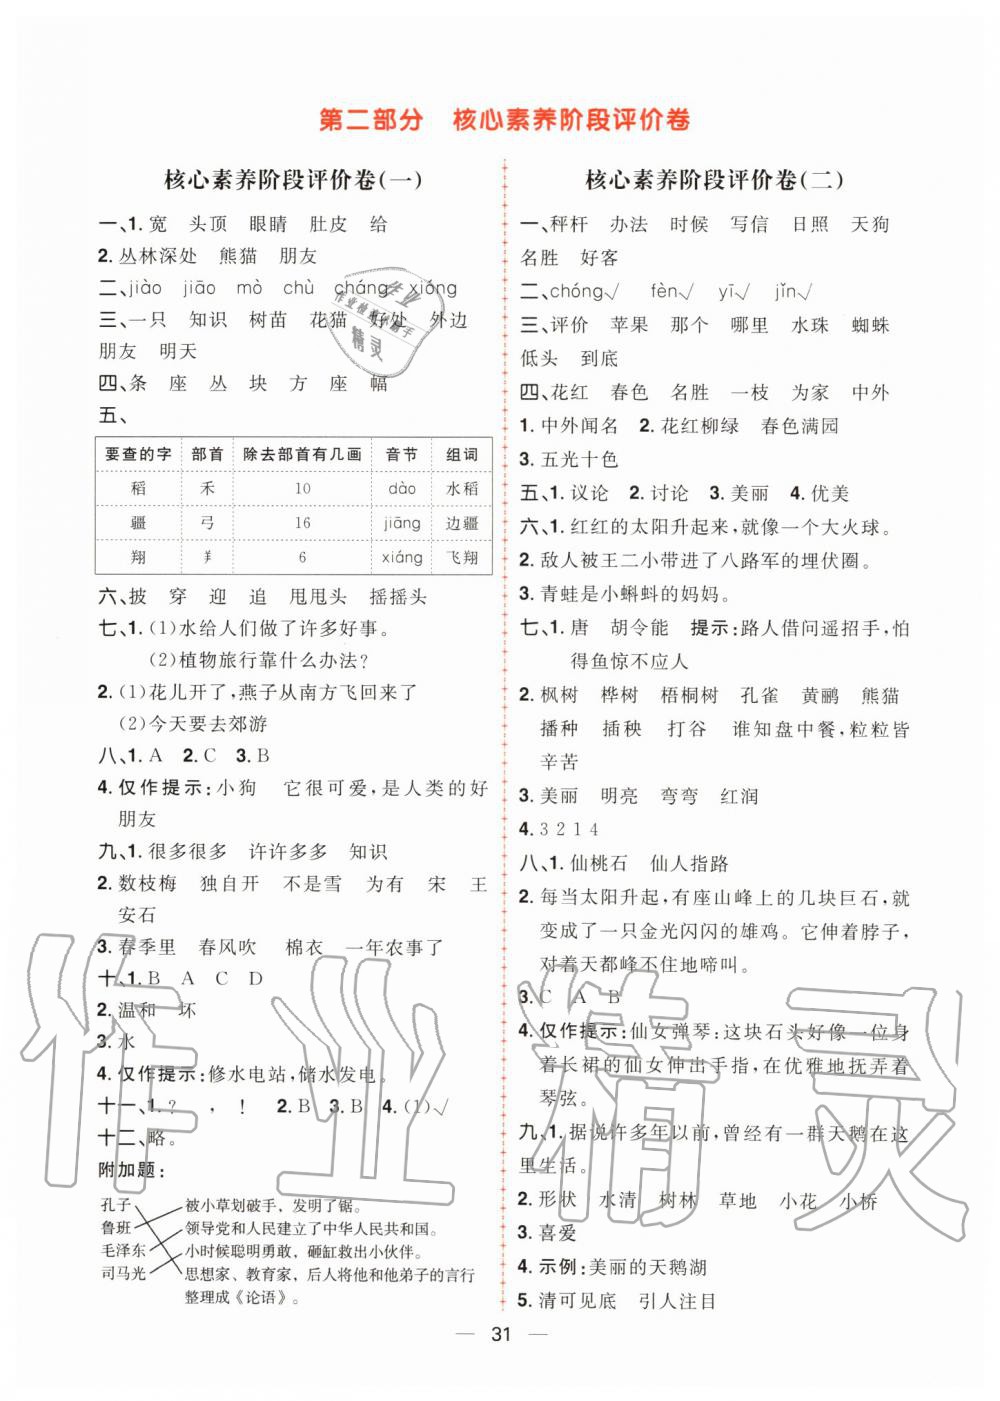 第二部分　核心素养阶段评价卷
核心素养阶段评价卷(一)
一、1. 宽　头顶　眼睛　肚皮　给
2. 丛林深处　熊猫　朋友
二、jiào　jiāo　mò　chù　cháng　xióng
三、一只　知识　树苗　花猫　好处　外边
朋友　明天
四、条　座　丛　块　方　座　幅
五、
要查的字　部首　除去部首有几画　音节　组词
稻　禾　10　dào　水稻
疆　弓　16　jiāng　边疆
翔　⺶　6　xiáng　飞翔
六、披　穿　迎　追　甩甩头　摇摇头
七、1. (1)水给人们做了许多好事。
(2)植物旅行靠什么办法?
2. (1)花儿开了,燕子从南方飞回来了
(2)今天要去郊游
八、1. A　2. C　3. B
4. 仅作提示:小狗　它很可爱,是人类的好
朋友
九、1. 很多很多　许许多多　知识
2. 数枝梅　独自开　不是雪　为有　宋　王
安石
3. 春季里　春风吹　棉衣　一年农事了
十、1. B　A　C　D
2. 温和　坏
3. 水
4. 仅作提示:修水电站,储水发电。
十一、1. ?　,　!　2. B　3. B　4. (1)√
十二、略。
附加题:
孔子　被小草划破手、发明了锯。
鲁班　领导党和人民建立了中华人民共和国。
毛泽东　小时候聪明勇敢,砸缸救出小伙伴。
司马光　思想家、教育家,后人将他和他弟子的言行
整理成《论语》。
核心素养阶段评价卷(二)
一、秤杆　办法　时候　写信　日照　天狗
名胜　好客
二、chóng√　fèn√　yī√　jǐn√
三、评价　苹果　那个　哪里　水珠　蜘蛛
低头　到底
四、花红　春色　名胜　一枝　为家　中外
1. 中外闻名　2. 花红柳绿　春色满园
3. 五光十色
五、1. 议论　2. 讨论　3. 美丽　4. 优美
六、1. 红红的太阳升起来,就像一个大火球。
2. 敌人被王二小带进了八路军的埋伏圈。
3. 青蛙是小蝌蚪的妈妈。
七、1. 唐　胡令能　提示:路人借问遥招手,怕
得鱼惊不应人
2. 枫树　桦树　梧桐树　孔雀　黄鹂　熊猫
播种　插秧　打谷　谁知盘中餐,粒粒皆
辛苦
3. 美丽　明亮　弯弯　红润
4. 3 2 1 4
八、1. 仙桃石　仙人指路
2. 每当太阳升起,有座山峰上的几块巨石,就
变成了一只金光闪闪的雄鸡。它伸着脖子,
对着天都峰不住地啼叫。
3. C　A　B
4. 仅作提示:仙女弹琴:这块石头好像一位身
着长裙的仙女伸出手指,在优雅地抚弄
琴弦。
九、1. 据说许多年以前,曾经有一群天鹅在这
里生活。
2. 形状　水清　树林　草地　小花　小桥
3. 喜爱
4. 示例:美丽的天鹅湖
5. 清可见底　引人注目
— 31 —
作业精灵